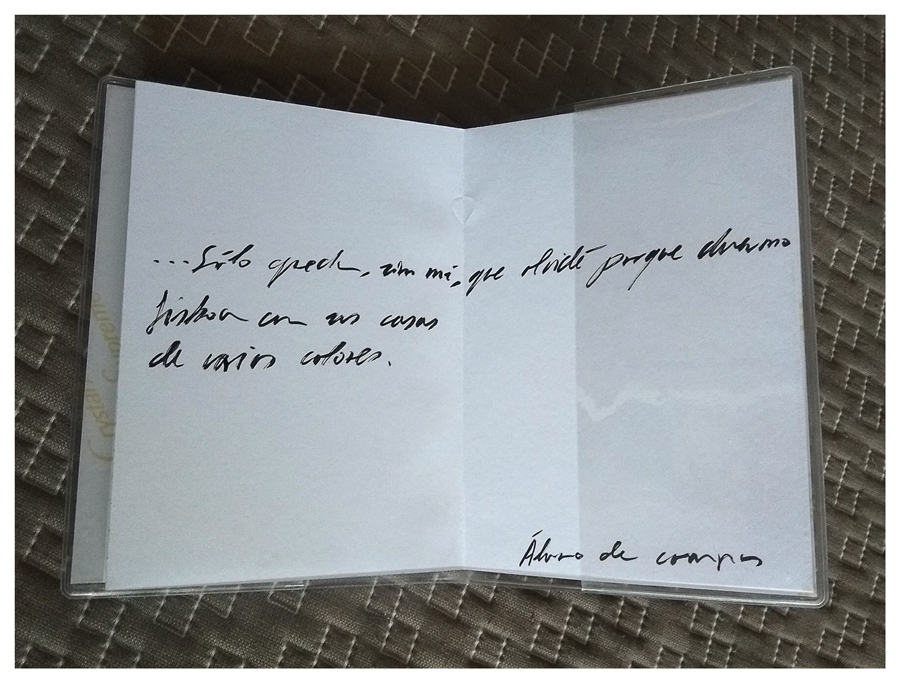 ...Sólo queda, sin mí, que olvidé porque duermo
Lisboa con sus casas
de varios colores.
Álvaro de campos
Crystal Supreme